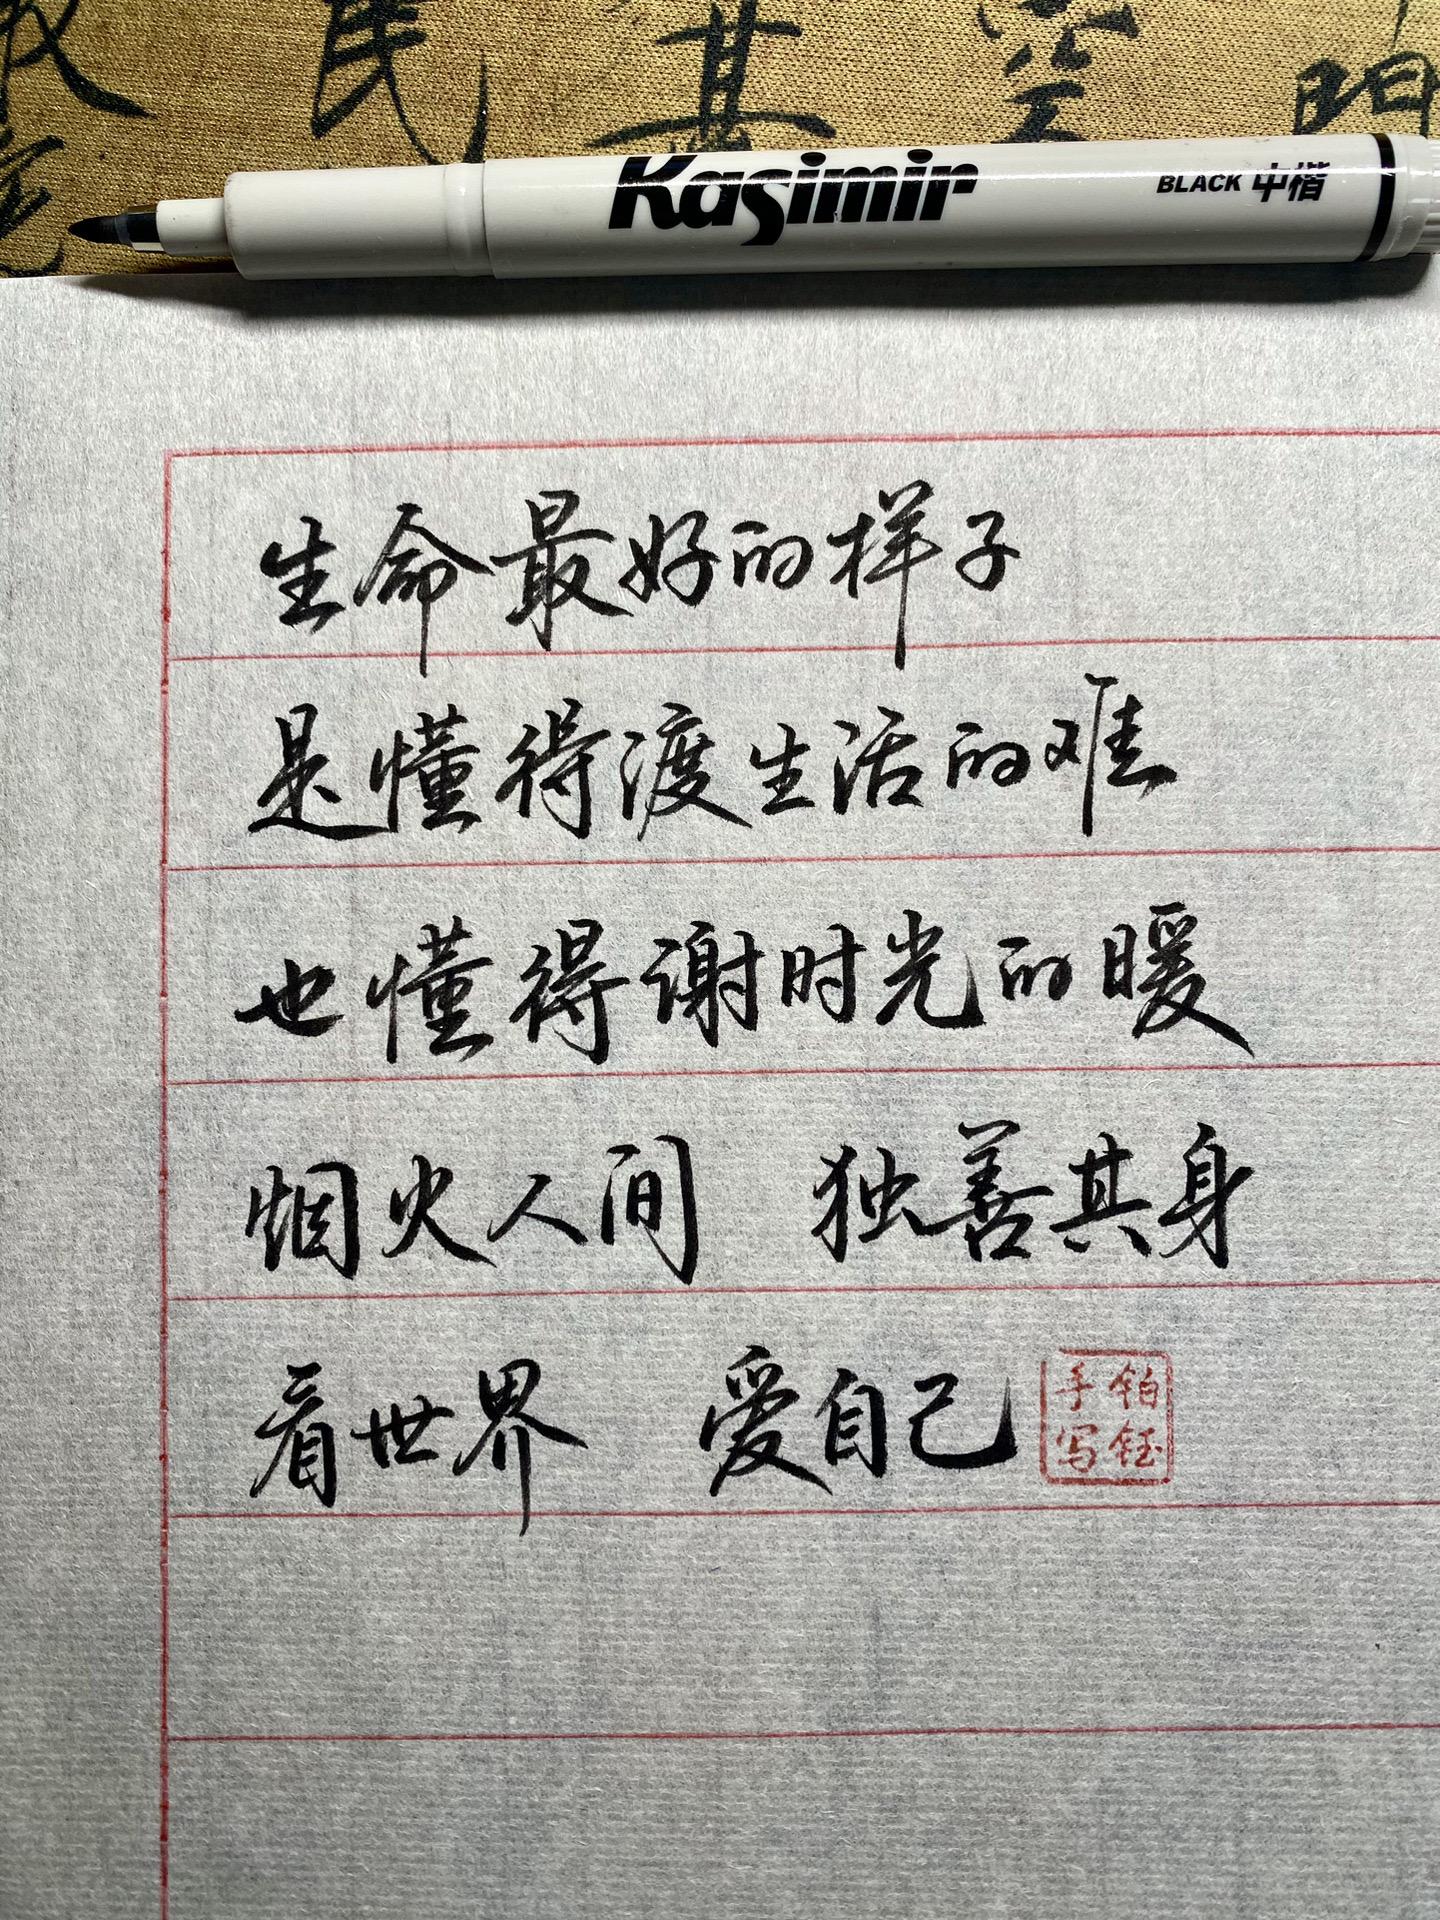 民 其 空
Kasimir BLACK 中楷
生命最好的样子
是懂得渡生活的难
也懂得谢时光的暖
烟火人间 独善其身
看世界 爱自己
铂钰手写